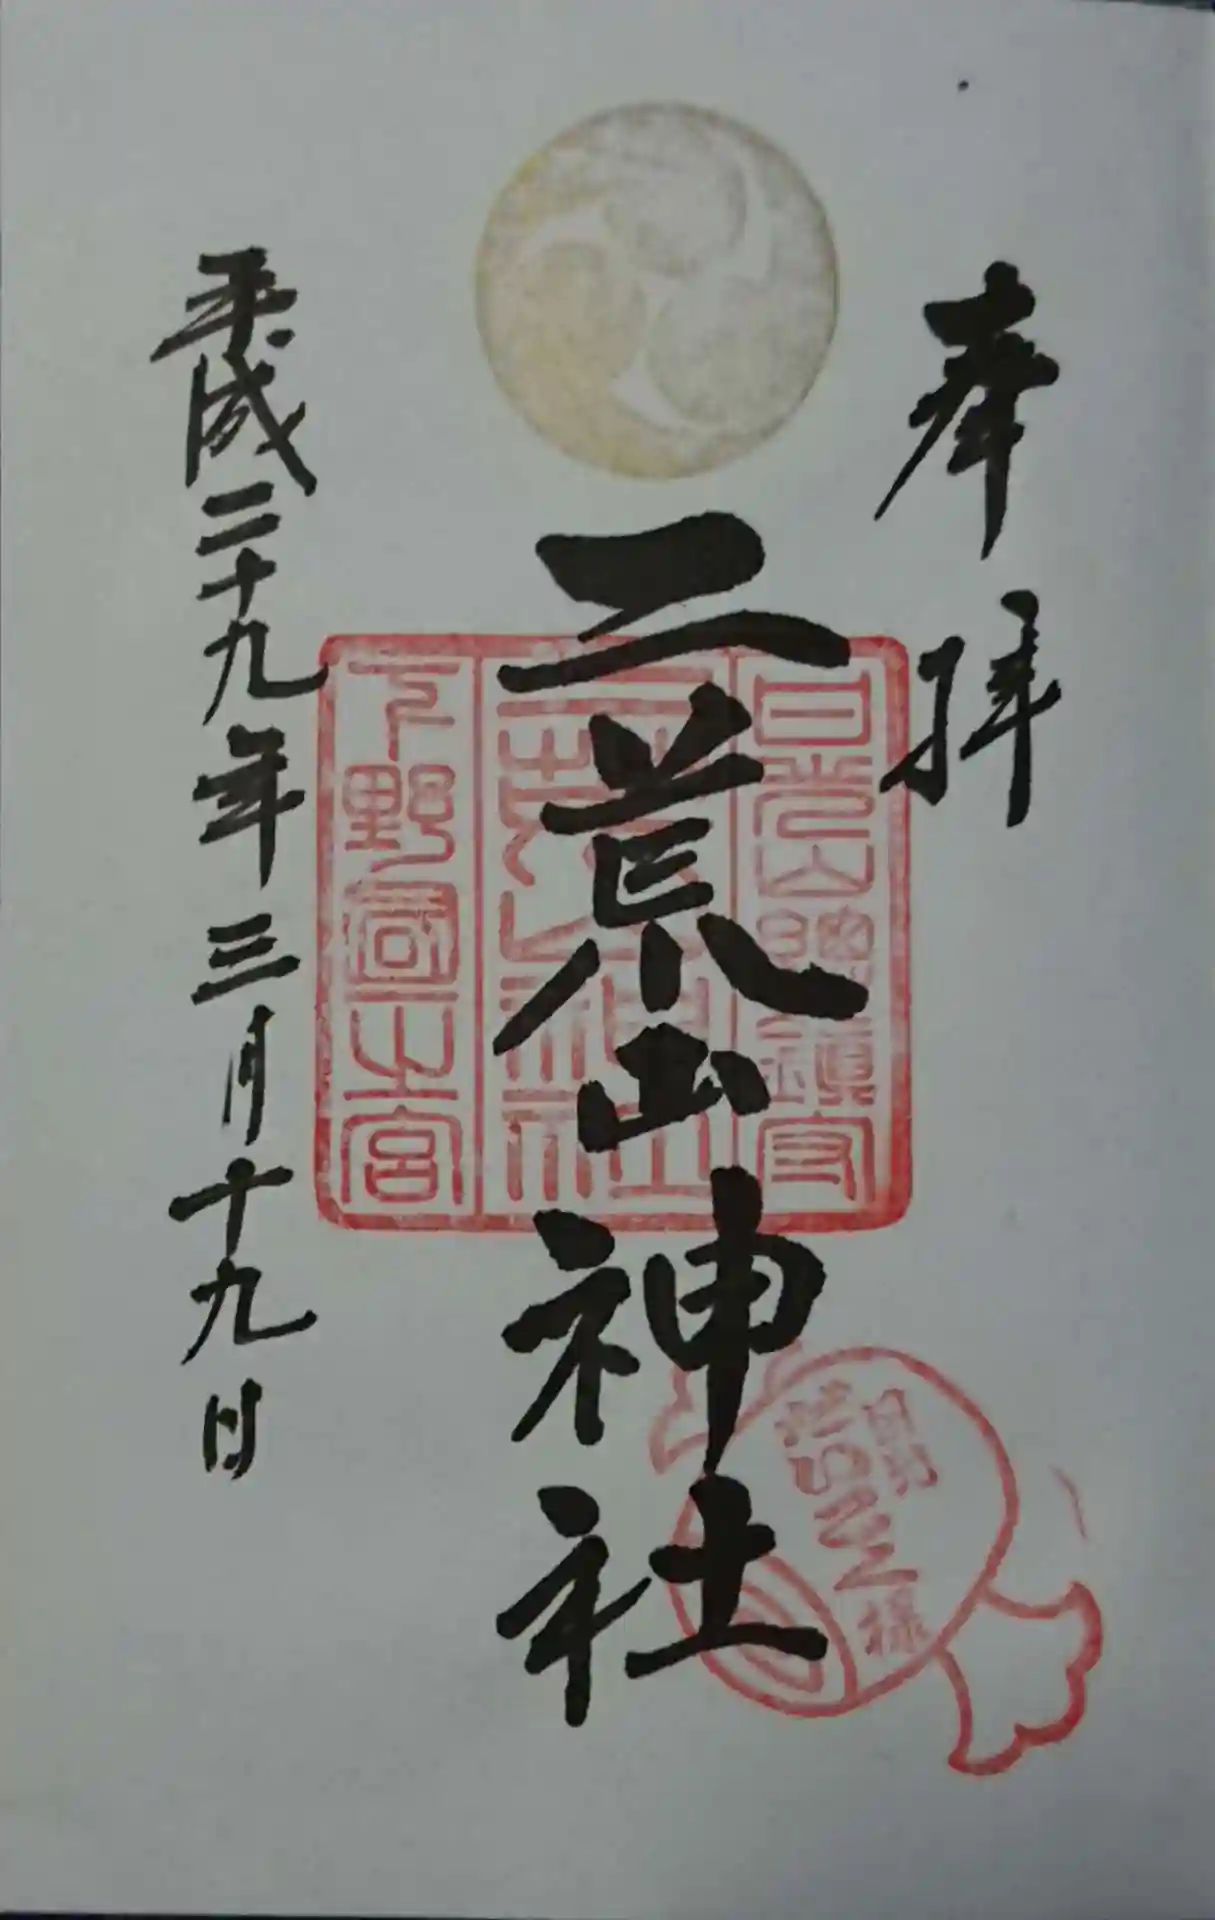 奉拝
日光山総鎮守
二荒山神社
二荒山神社
下野国一之宮
平成二十九年三月十九日